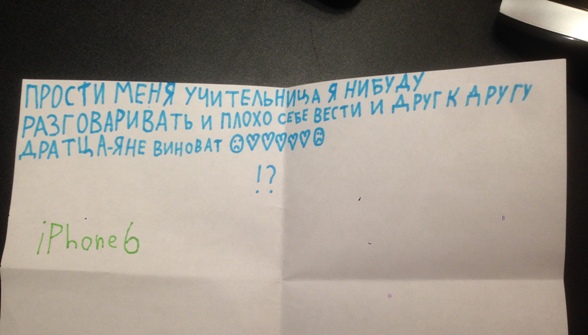 ПРОСТИ МЕНЯ УЧИТЕЛЬНИЦА Я НИБУДУ
РАЗГОВАРИВАТЬ И ПЛОХО СЕБЕ ВЕСТИ И ДРУГ К ДРУГУ
ДРАТЦА-ЯНЕ ВИНОВАТ ☹♡♡♡♡♡☹
!?
iPhone6